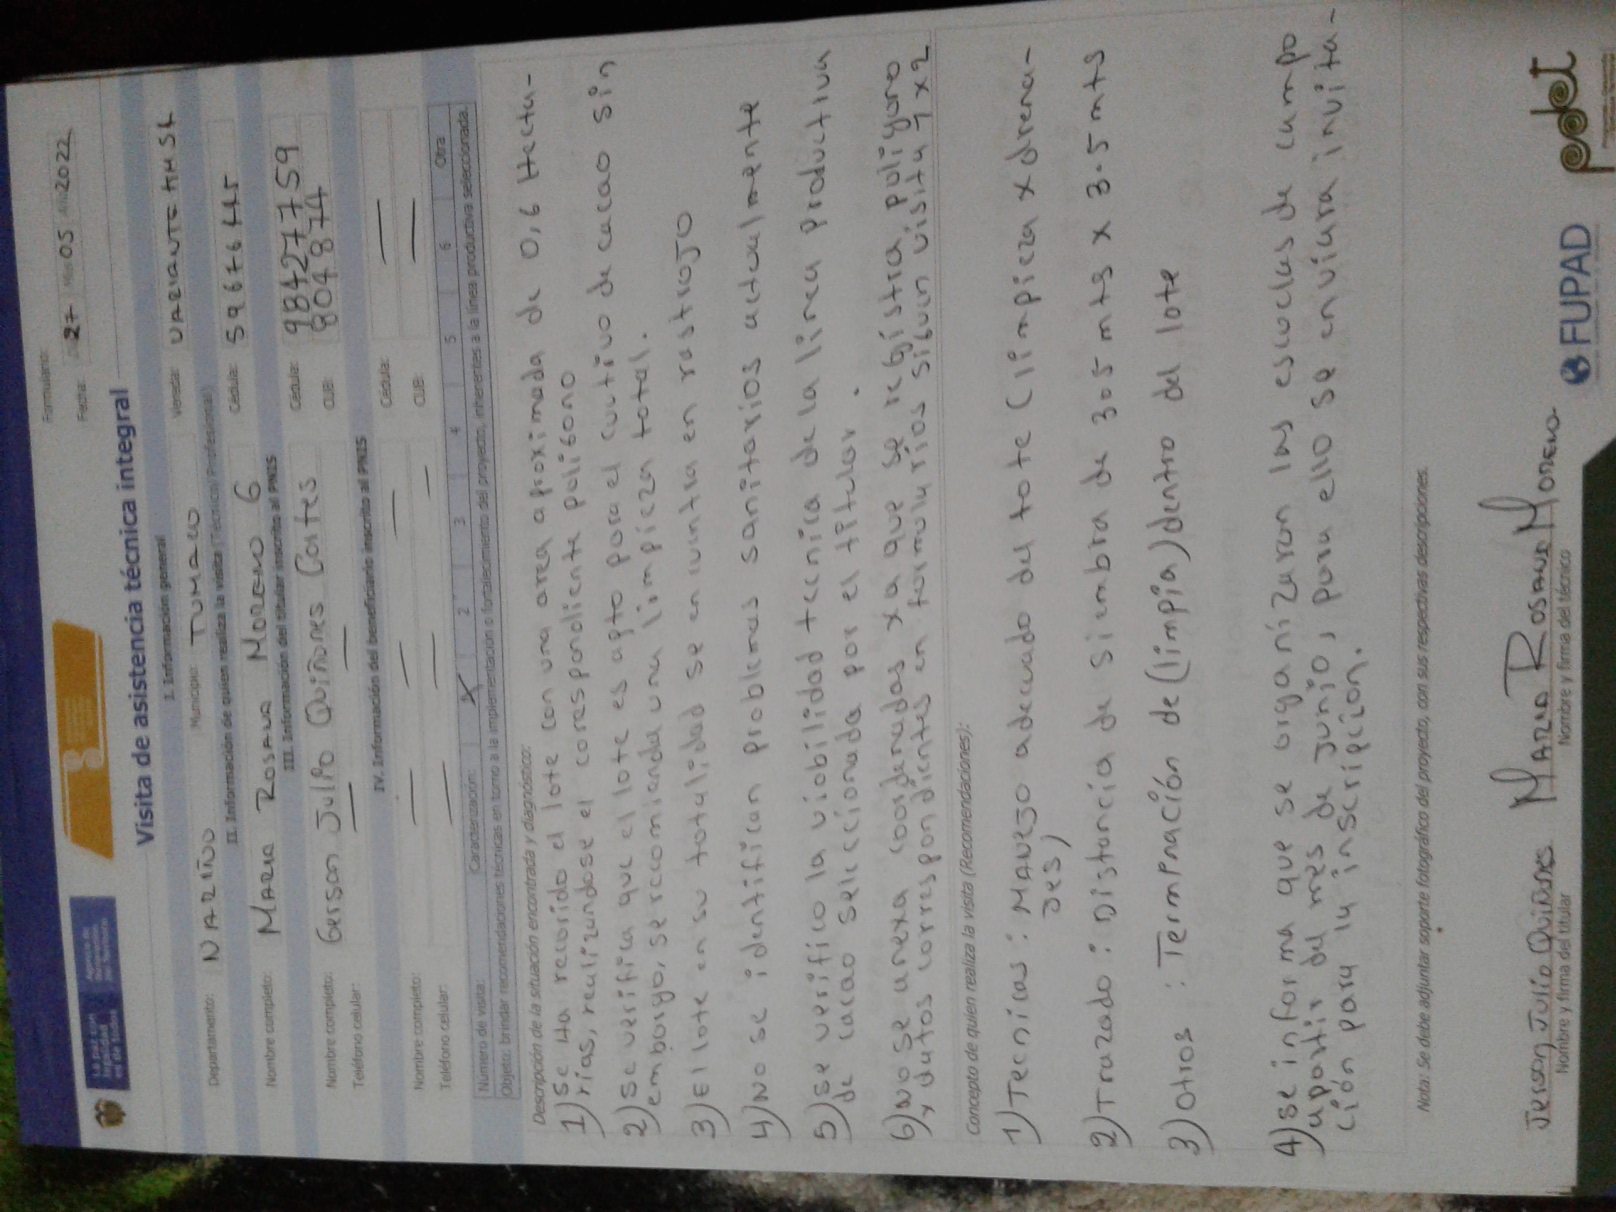 Formulario:
Fecha: 27 05 2022
Visita de asistencia técnica integral
I. Información general
Departamento: NARIÑO Municipio: TUMACO Vereda: VARIANTE
II. Información de quien realiza la visita (Técnico/Profesional)
Nombre completo: MARIA ROSAUA MORENO G Cédula:
III. Información del titular inscrito al PNIS
Nombre completo: Gerson Julio Quiñones Cortes Cédula: 98427759
Teléfono celular: — — CUB: 804874
IV. Información del beneficiario inscrito al PNIS
Nombre completo: — — — Cédula: —
Teléfono celular: — — — CUB: —
Número de visita: Caracterización: X 2 3 4 5 6 Otra
Objeto: brindar recomendaciones técnicas en torno a la implementación o fortalecimiento del proyecto, inherentes a la línea productiva seleccionada.
Descripción de la situación encontrada y diagnóstico:
1) se Ha recorido el lote con una area aproximada de 0,6 Hecta-
rias, realizandose el correspondiente poligono
2) se verifica que el lote es apto para el cultivo de cacao sin
embargo, se recomienda una limpieza total.
3) El lote en su totalidad se encuentra en rastrojo
4) No se identifican problemas sanitarios actualmente
5) se verifico la viabilidad tecnica de la linea productiva
de cacao seleccionada por el titular.
6) No se anexa coordenadas xa que se registra poligono
x datos correspondientes en formularios sigun visita 1 x 2
Concepto de quien realiza la visita (Recomendaciones):
1) Tecnicas: MANEJO adecuado del lote (limpieza x drena-
Jes)
2) Trazado: Distancia de siembra de 3.5 mts x 3.5 mts
3) Otros: Terminación de (limpia) dentro del lote
4) se informa que se organizaran las escuelas de campo
apartir del mes de junio, para ello se enviara invita-
ción para la inscripcion.
Nota: Se debe adjuntar soporte fotográfico del proyecto, con sus respectivas descripciones.
Jerson Julio Quiñones MARIA ROSAUA MORENO
Nombre y firma del titular Nombre y firma del técnico
FUPAD
pdet